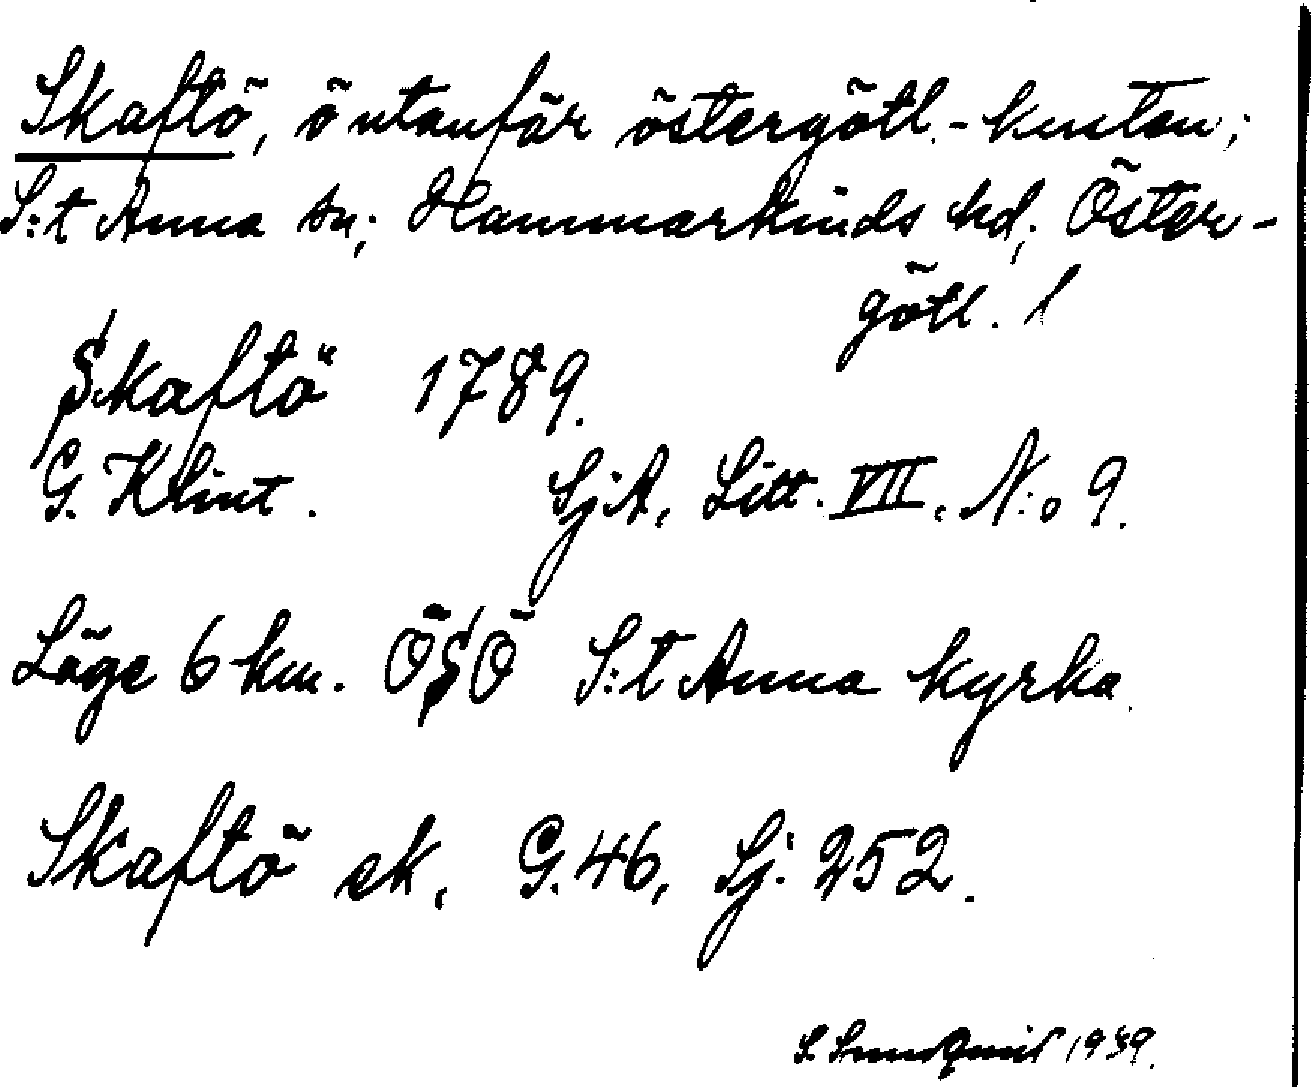 Skaftö, ö utanför östergötl.-kusten;
S:t Anna sn; Hammarkinds hd; Öster-
götl. l
Skaftö 1789.
G. Klint. SjA, Litt. VII. N:o 9.
Läge 6 km. ÖSÖ S:t Anna kyrka.
Skaftö ek. G. 46, Sj. 252.
S. 1939.